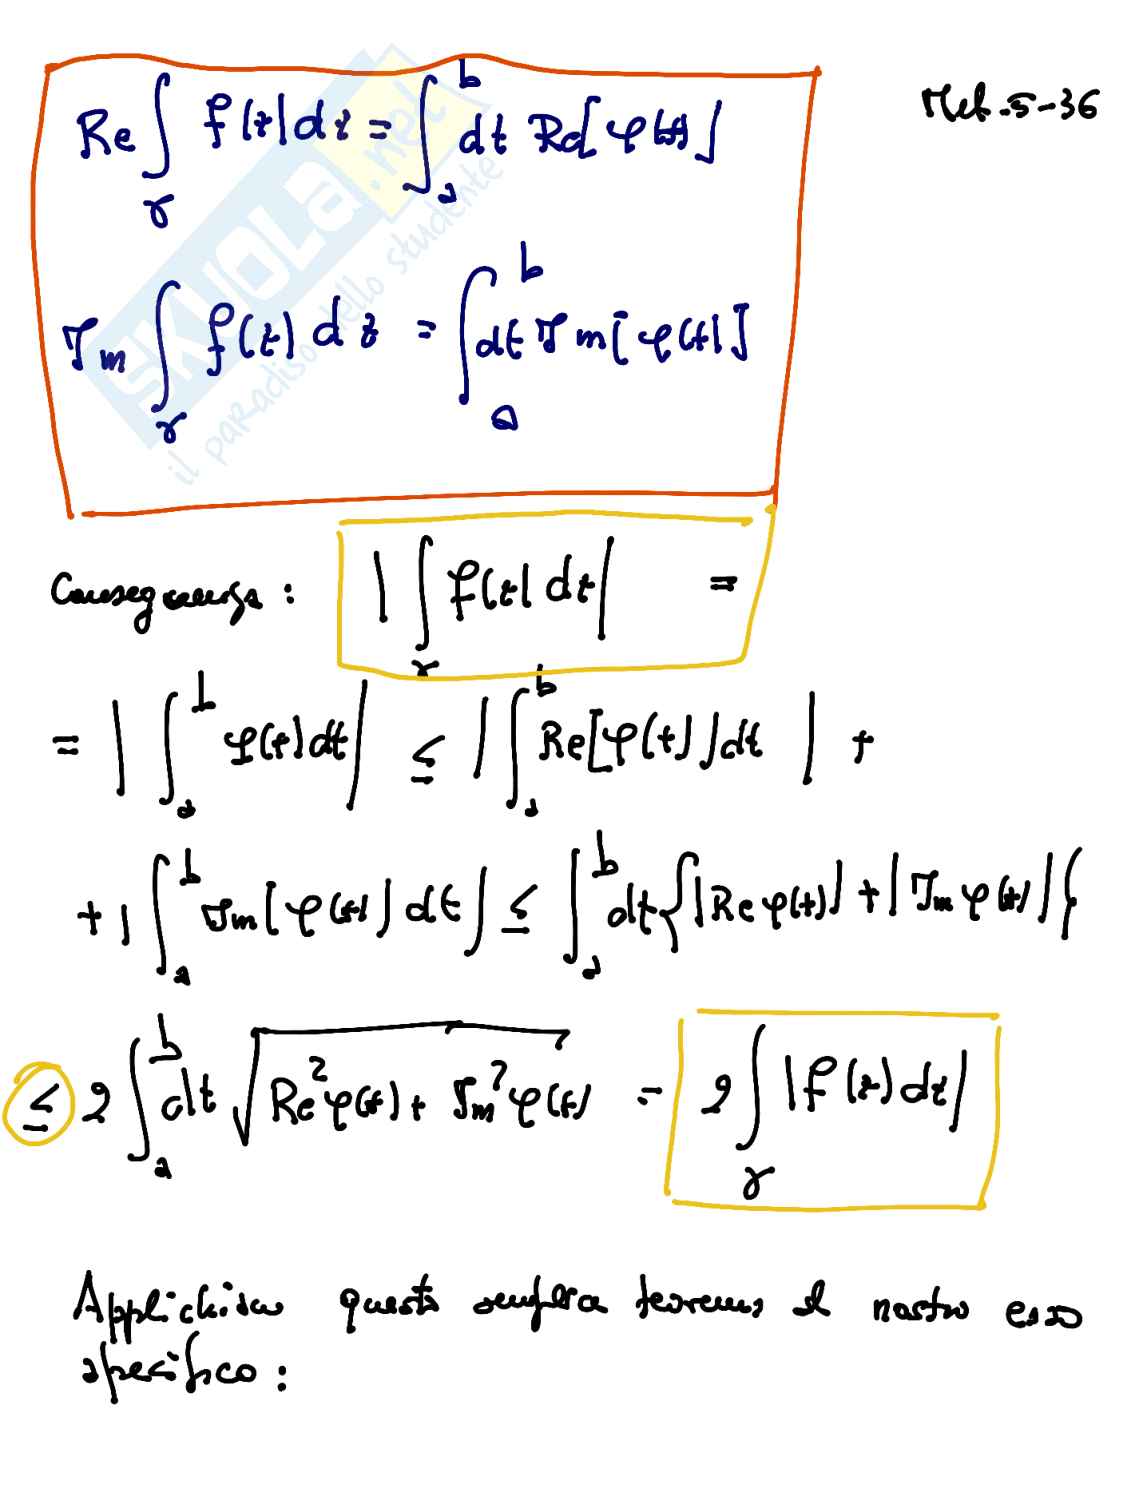 Met.5-36
Re ∫_γ f(z)dz = ∫_a^b dt Re[φ(t)]
Im ∫_γ f(z) dz = ∫_a^b dt Im[φ(t)]
SKUOLA.net
il paradiso dello studente
Conseguenza: |∫_γ f(z) dz| =
= |∫_a^b φ(t)dt| ≤ |∫_a^b Re[φ(t)]dt| +
+ |∫_a^b Im[φ(t)]dt| ≤ ∫_a^b dt{|Re φ(t)| + |Im φ(t)|}
≤ 2 ∫_a^b dt √(Re²φ(t) + Im²φ(t)) = 2 ∫_γ |f(z) dz|
Applichiamo questo semplice teorema al nostro caso
specifico: